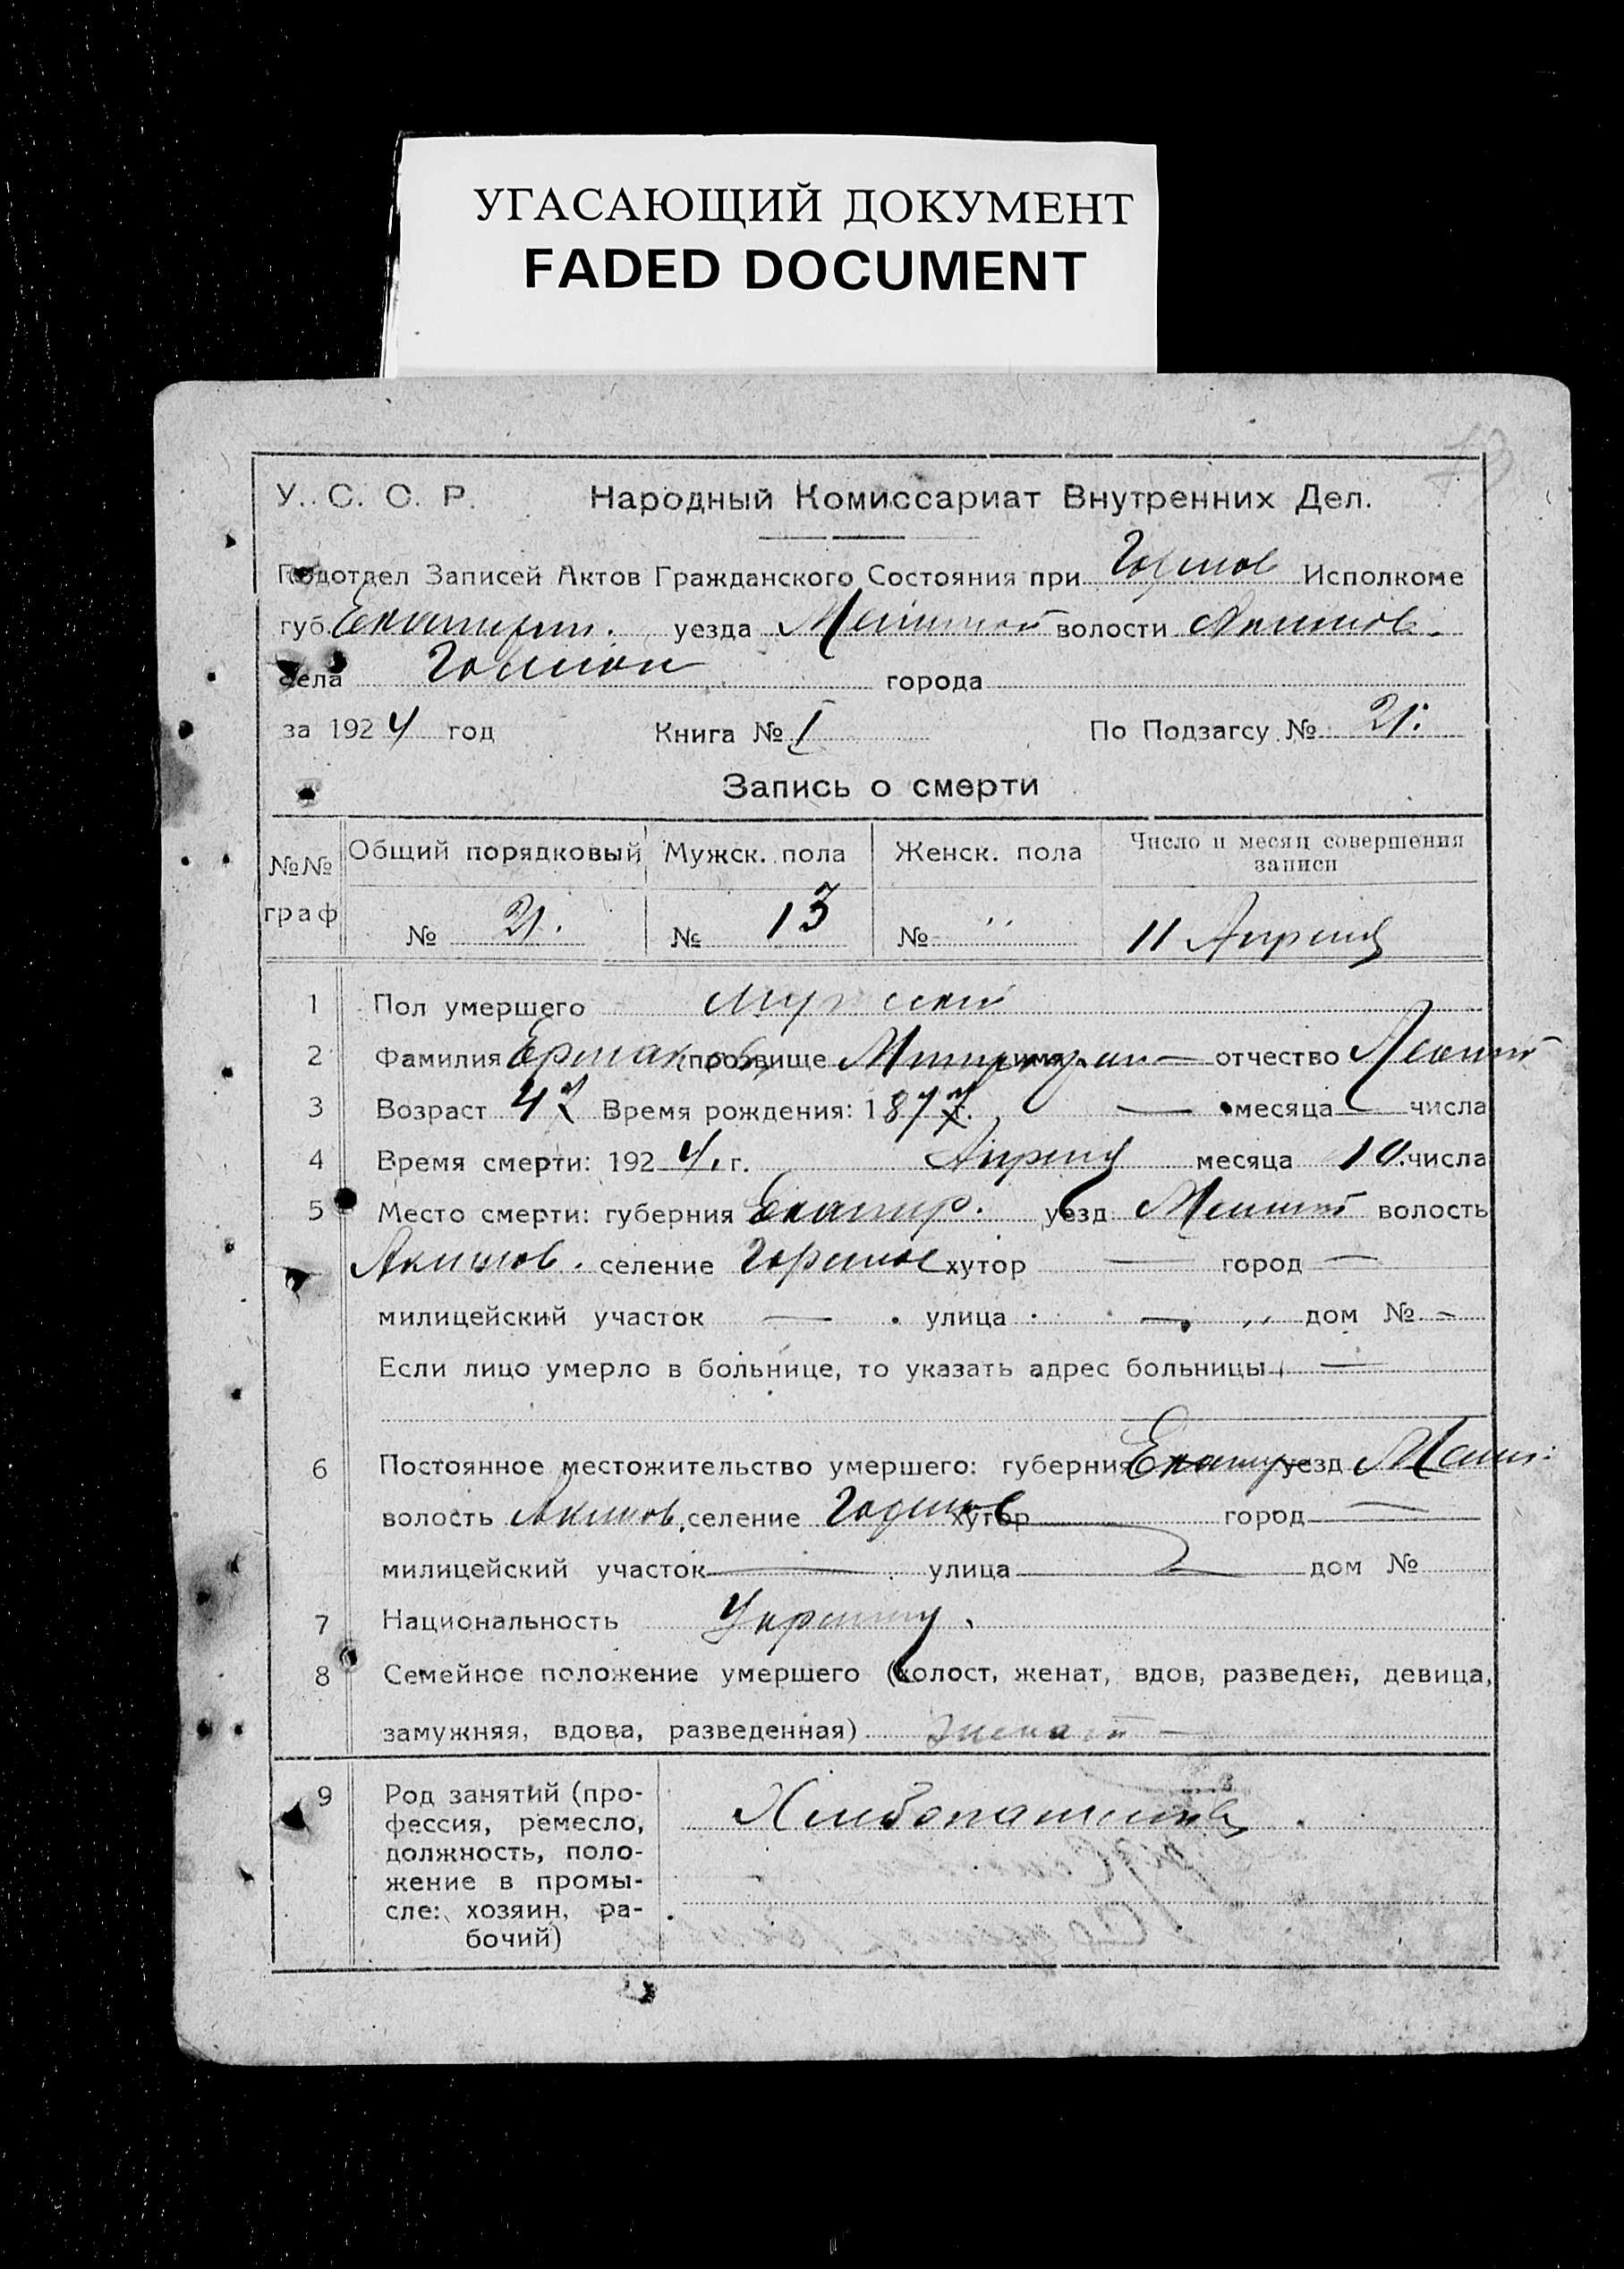 УГАСАЮЩИЙ ДОКУМЕНТ
FADED DOCUMENT
У. С. С. Р. Народный Комиссариат Внутренних Дел.
Подотдел Записей Актов Гражданского Состояния при Исполкоме
губ. Екатерин. уезда волости Акимов.
села города
за 1924 год Книга № I По Подзагсу № 21.
Запись о смерти
№№ граф Общий порядковый Мужск. пола Женск. пола Число и месяц совершения записи
№ 21. № 13 № " 11 Апреля
1 Пол умершего мужской
2 Фамилия Ермаков прозвище имя Митрофан — отчество
3 Возраст 47 Время рождения: 1877 г. — месяца — числа
4 Время смерти: 1924 г. Апреля месяца 10. числа
5 Место смерти: губерния Екатер. уезд волость
Акимов. селение хутор — город —
милицейский участок — улица — " дом № —
Если лицо умерло в больнице, то указать адрес больницы —
6 Постоянное местожительство умершего: губерния Екатер уезд
волость Акимов. селение хутор город —
милицейский участок — улица — дом №
7 Национальность
8 Семейное положение умершего (холост, женат, вдов, разведен, девица,
замужняя, вдова, разведенная) женат —
9 Род занятий (про-
фессия, ремесло, Хлебопашец
должность, поло-
жение в промы-
сле: хозяин, ра-
бочий)